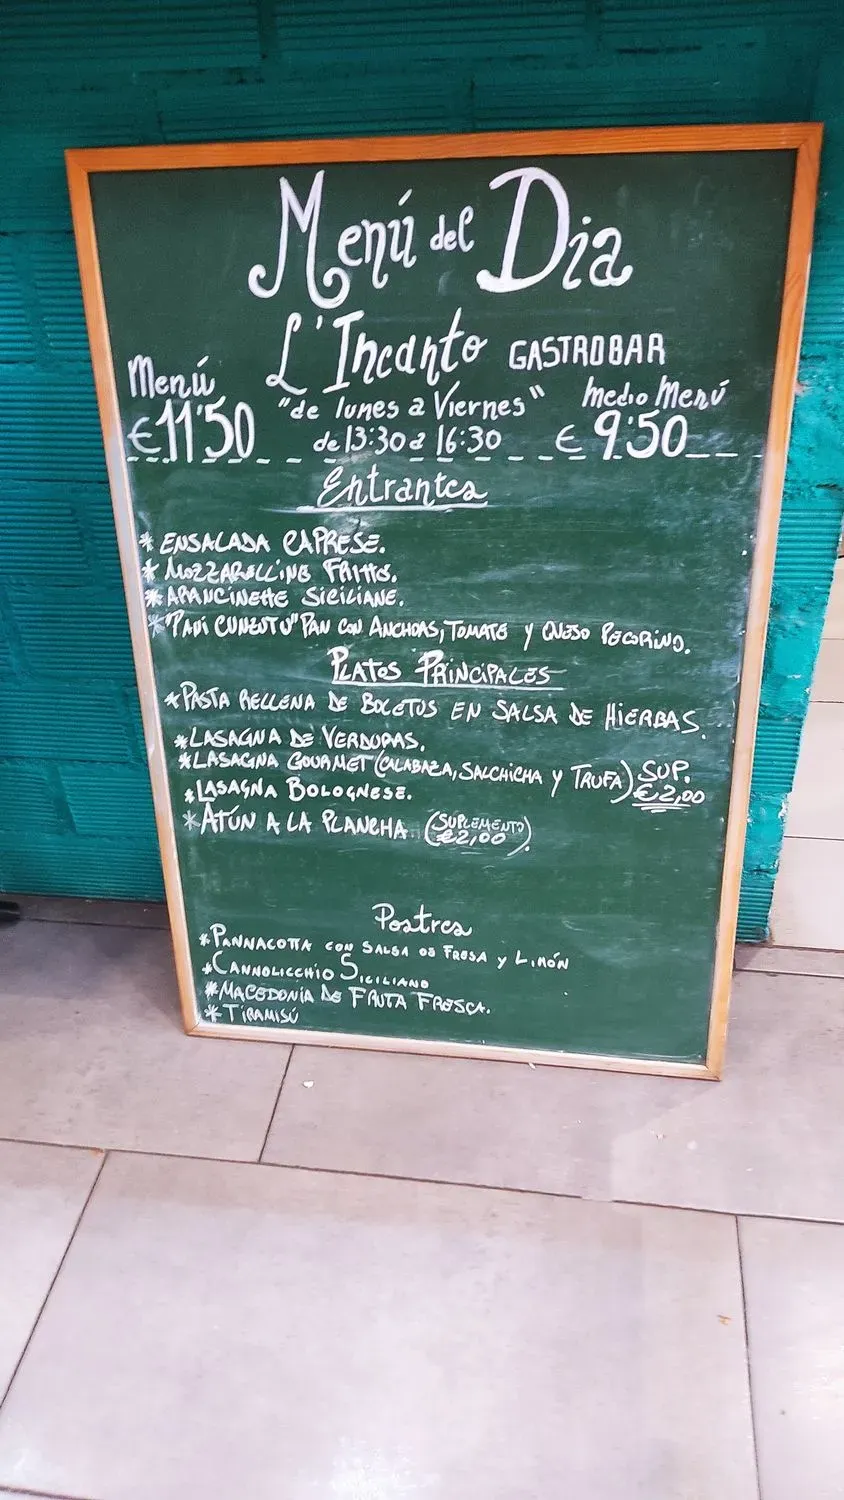 Menú del Dia
L'Incanto GASTROBAR
Menú "de lunes a Viernes" Medio Menú
€11'50 de 13:30 a 16:30 € 9'50
Entrantes
* ENSALADA CAPRESE.
* MOZZARELLINE FRITTE.
* ARANCINETTE SICILIANE.
* "PANI CUNZATU" PAN CON ANCHOAS, TOMATE Y QUESO PECORINO.
PLATOS PRINCIPALES
* PASTA RELLENA DE BOLETUS EN SALSA DE HIERBAS.
* LASAGNA DE VERDURAS.
* LASAGNA GOURMET (CALABAZA, SALCHICHA Y TRUFA) SUP. €2,00
* LASAGNA BOLOGNESE.
* ATÚN A LA PLANCHA (SUPLEMENTO €2,00).
Postres
* PANNACOTTA CON SALSA DE FRESA Y LIMÓN
* CANNOLICCHIO SICILIANO
* MACEDONIA DE FRUTA FRESCA.
* TIRAMISÚ